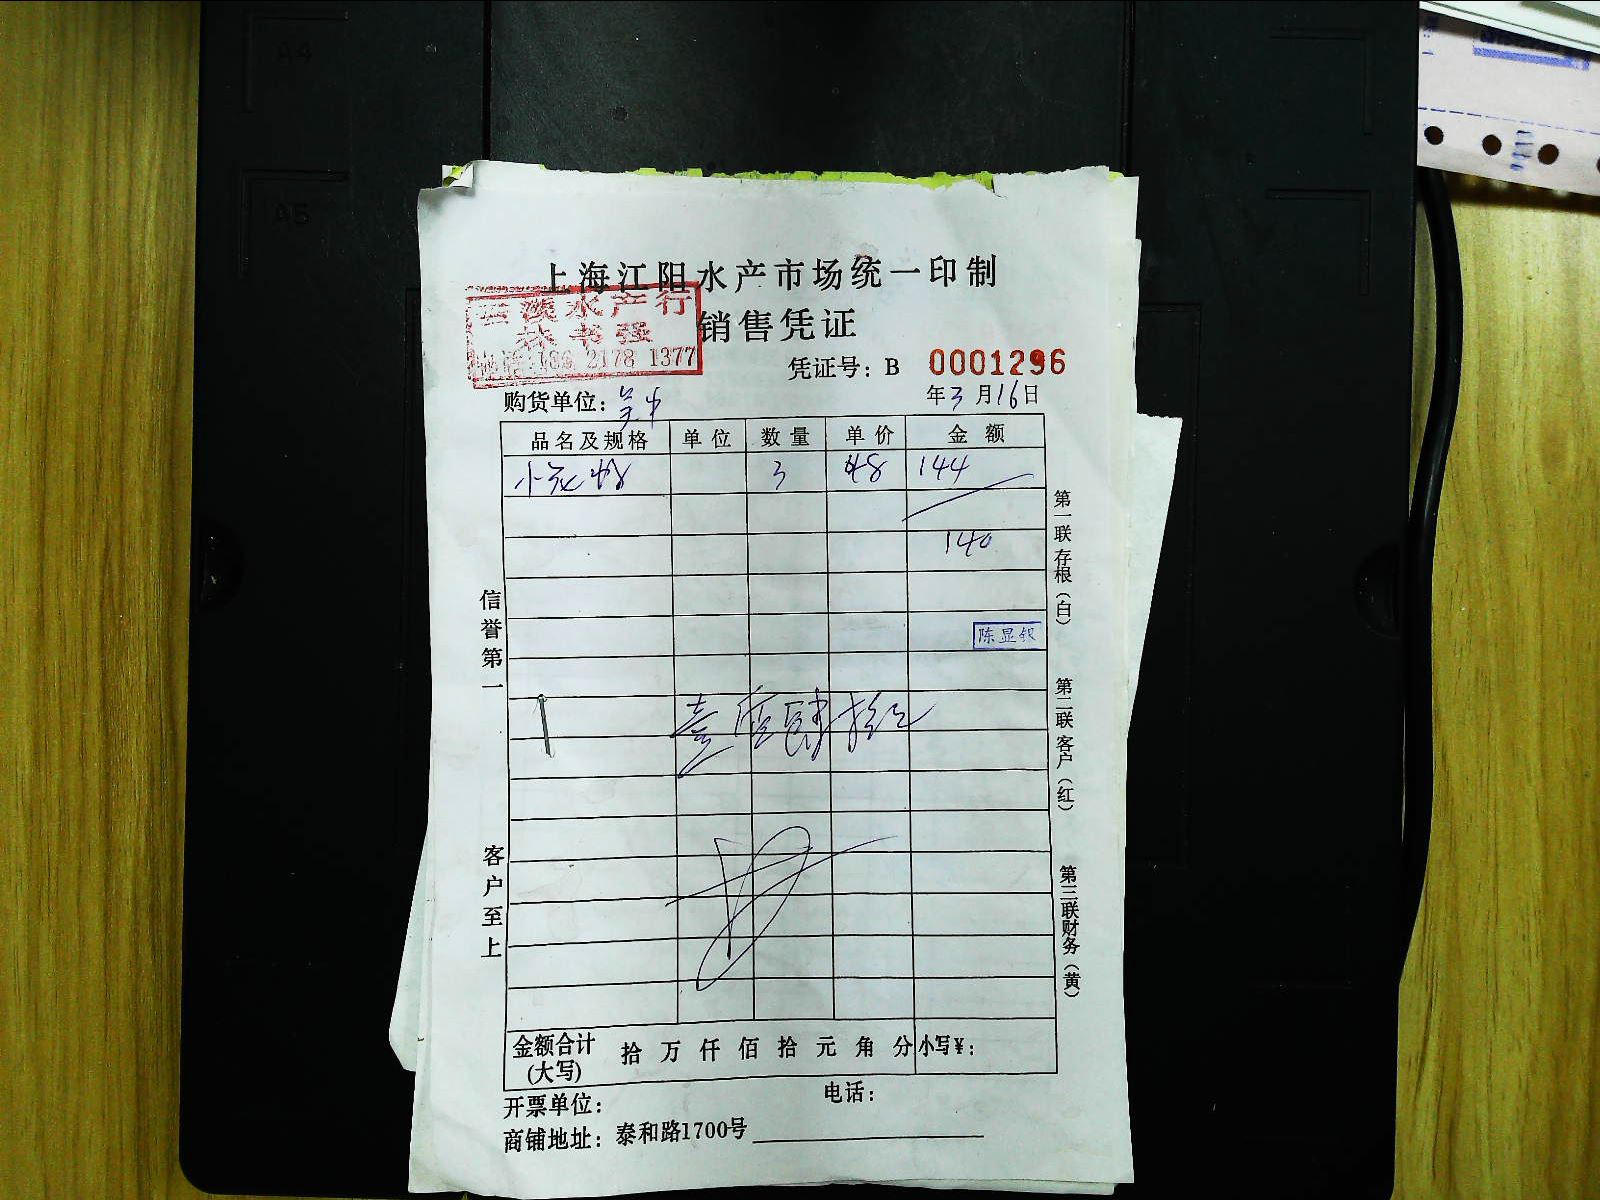 A4
A5
上海江阳水产市场统一印制
水产行
林书强
186 2178 1377
销售凭证
凭证号：B 0001296
购货单位：
年3月16日
品名及规格 单位 数量 单价 金额
小花 3 48 144
140
陈显
壹佰肆拾元
信誉第一
客户至上
第一联存根（白）
第二联客户（红）
第三联财务（黄）
金额合计(大写) 拾 万 仟 佰 拾 元 角 分 小写¥：
开票单位： 电话：
商铺地址：泰和路1700号